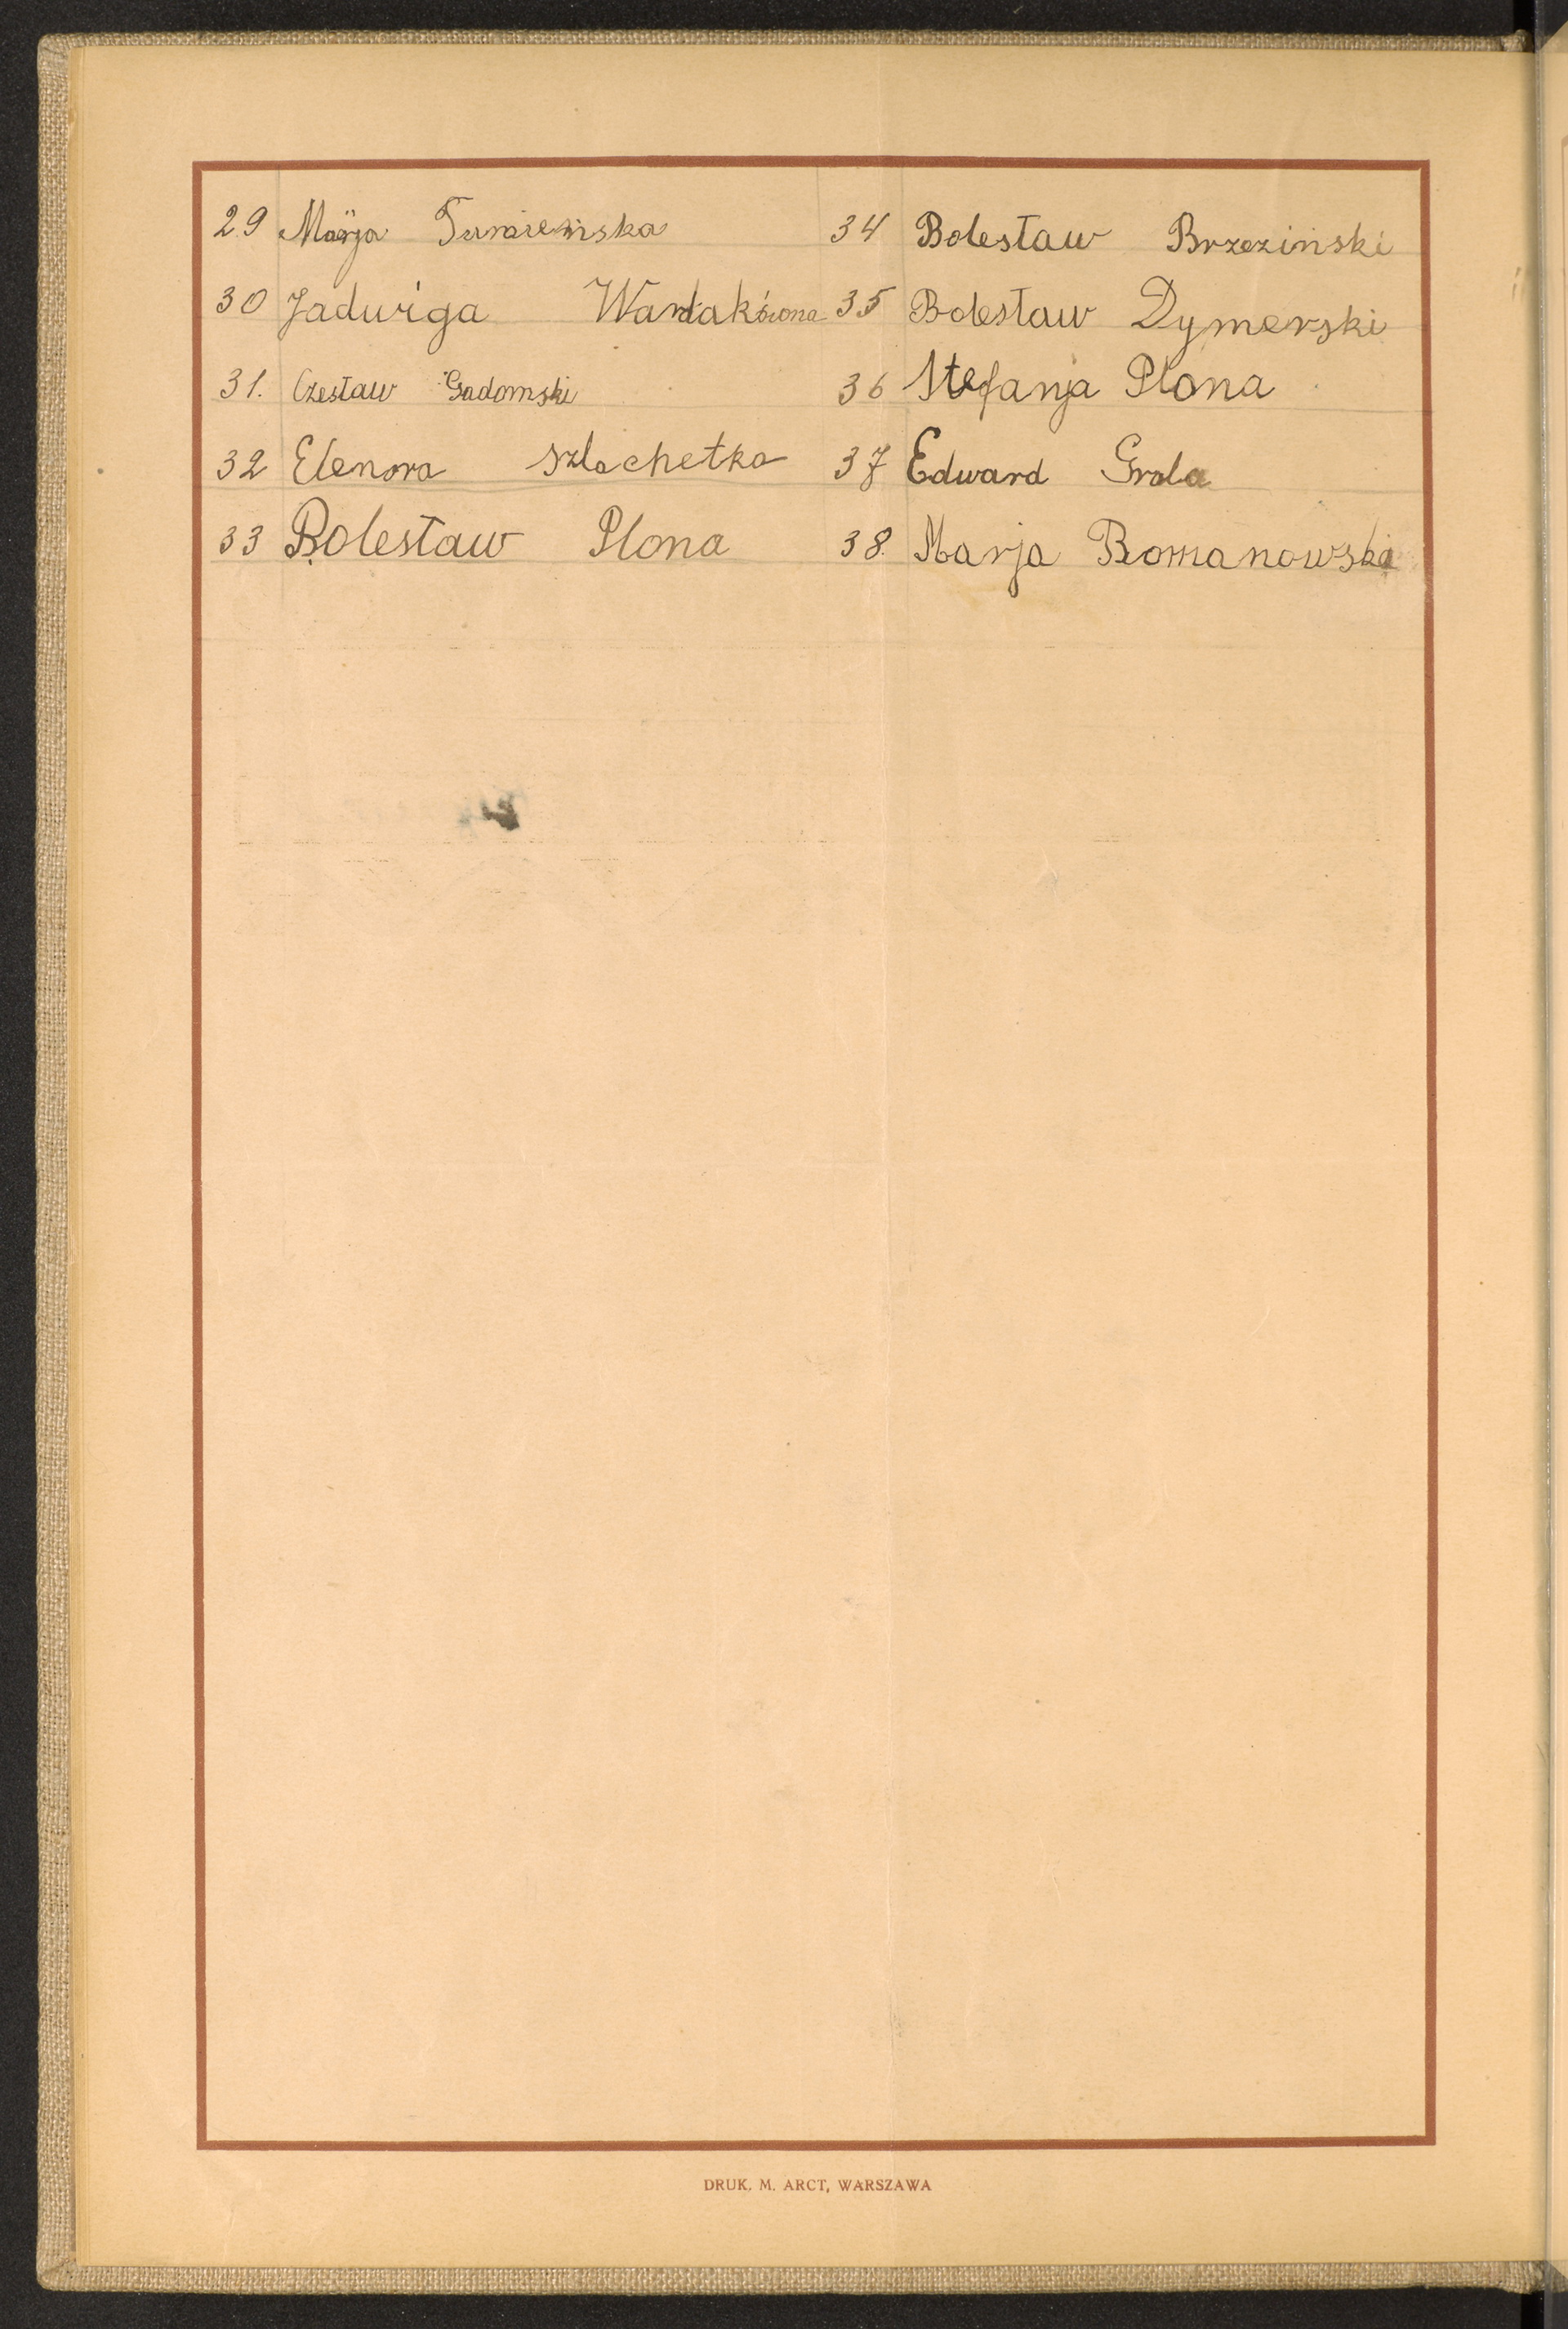 29 Marja
30 Jadwiga Wardakówna
31. Czesław Gadomski
32 Elenora Szlachetka
33 Bolesław Plona
34 Bolesław Brzeziński
35 Bolesław Dymerski
36 Stefanja Plona
37 Edward Grola
38. Marja Romanowska
DRUK. M. ARCT, WARSZAWA